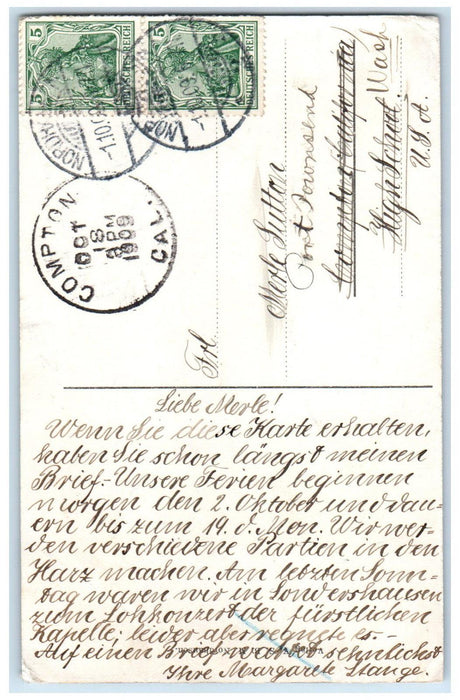 5 5
DEUTSCHES REICH DEUTSCHES REICH
NORDH
1.10.09
NORDH
COMPTON
OCT
18
3 PM
1909
CAL.
Frl.
Merle Sutton
Port Townsend
Compton California
Wash
High School
U.S.A.
Liebe Merle!
Wenn Sie diese Karte erhalten,
haben Sie schon längst meinen
Brief. - Unsere Ferien beginnen
morgen den 2. Oktober und dau-
ern bis zum 19. d. Mon. Wir wer-
den verschiedene Partien in den
Harz machen. Am letzten Sonn-
tag waren wir in Sondershausen
zum Lohkonzert der fürstlichen
Kapelle, leider aber regnete es. -
Auf einen Brief wartet sehnlichst
Ihre Margarete Stange.